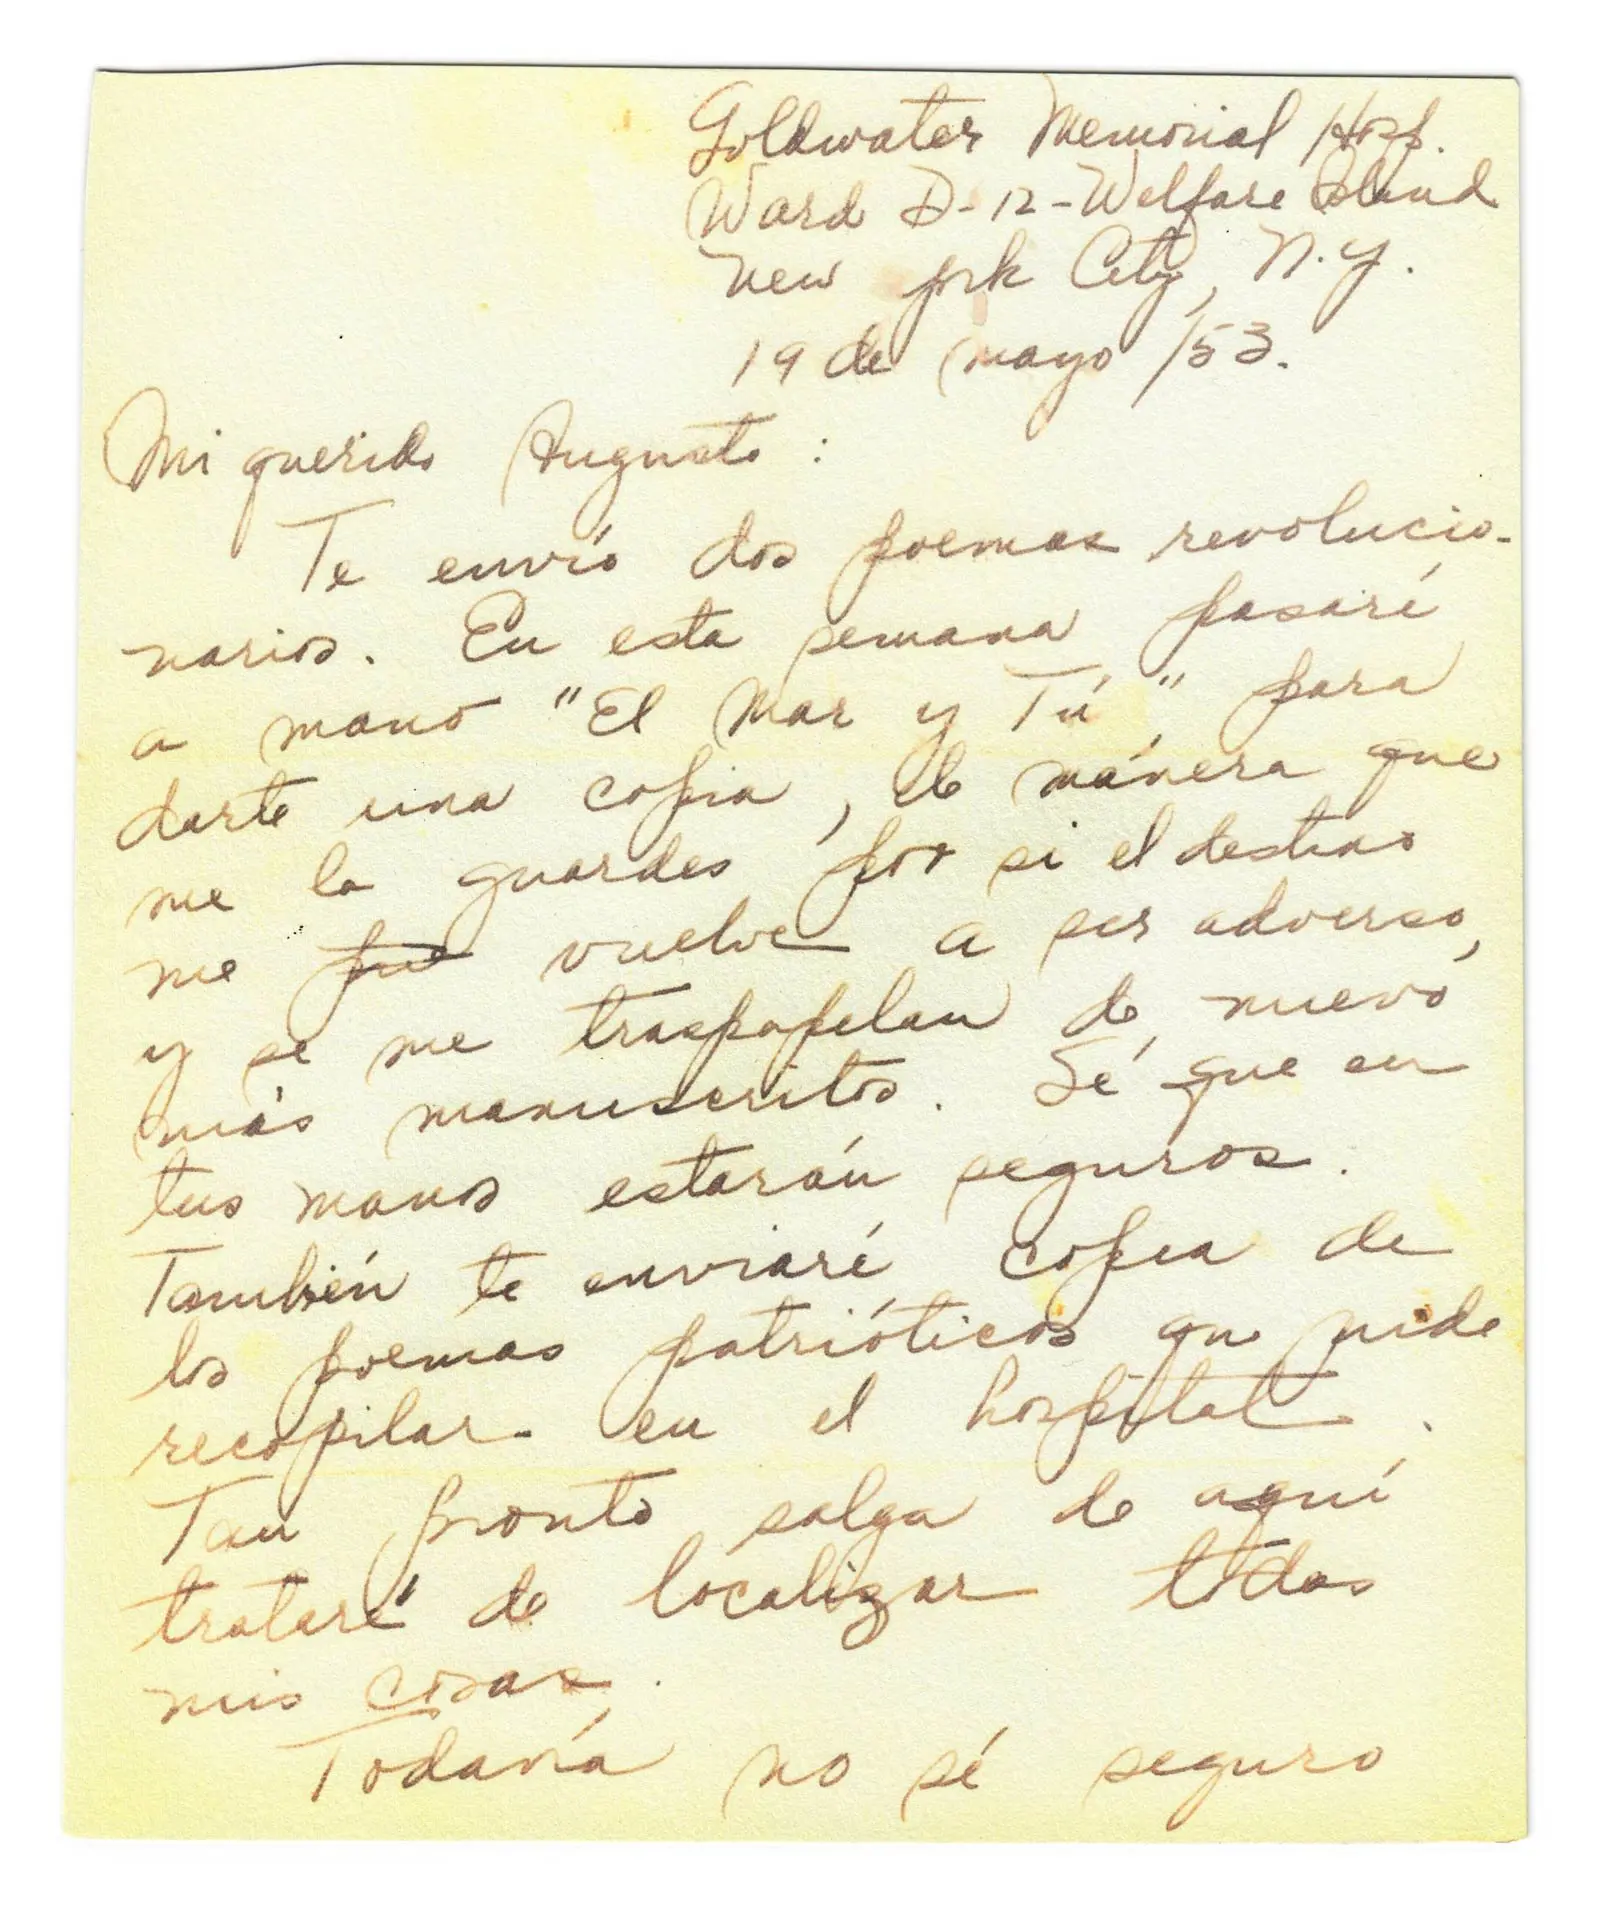 Goldwater Memorial Hosp.
Ward D-12-Welfare Island
New York City, N.Y.
19 de mayo /53.
Mi querido Augusto:
Te envío dos poemas revolucio-
narios. En esta semana pasaré
a mano "El Mar y Tú" para
darte una copia, de manera que
me la guardes por si el destino
me fue vuelve a ser adverso,
y se me traspapelan de nuevo
más manuscritos. Sé que en
tus manos estarán seguros.
También te enviaré copia de
los poemas patrióticos que pude
recopilar en el hospital.
Tan pronto salga de aquí
trataré de localizar todas
mis cosas.
Todavía no sé seguro